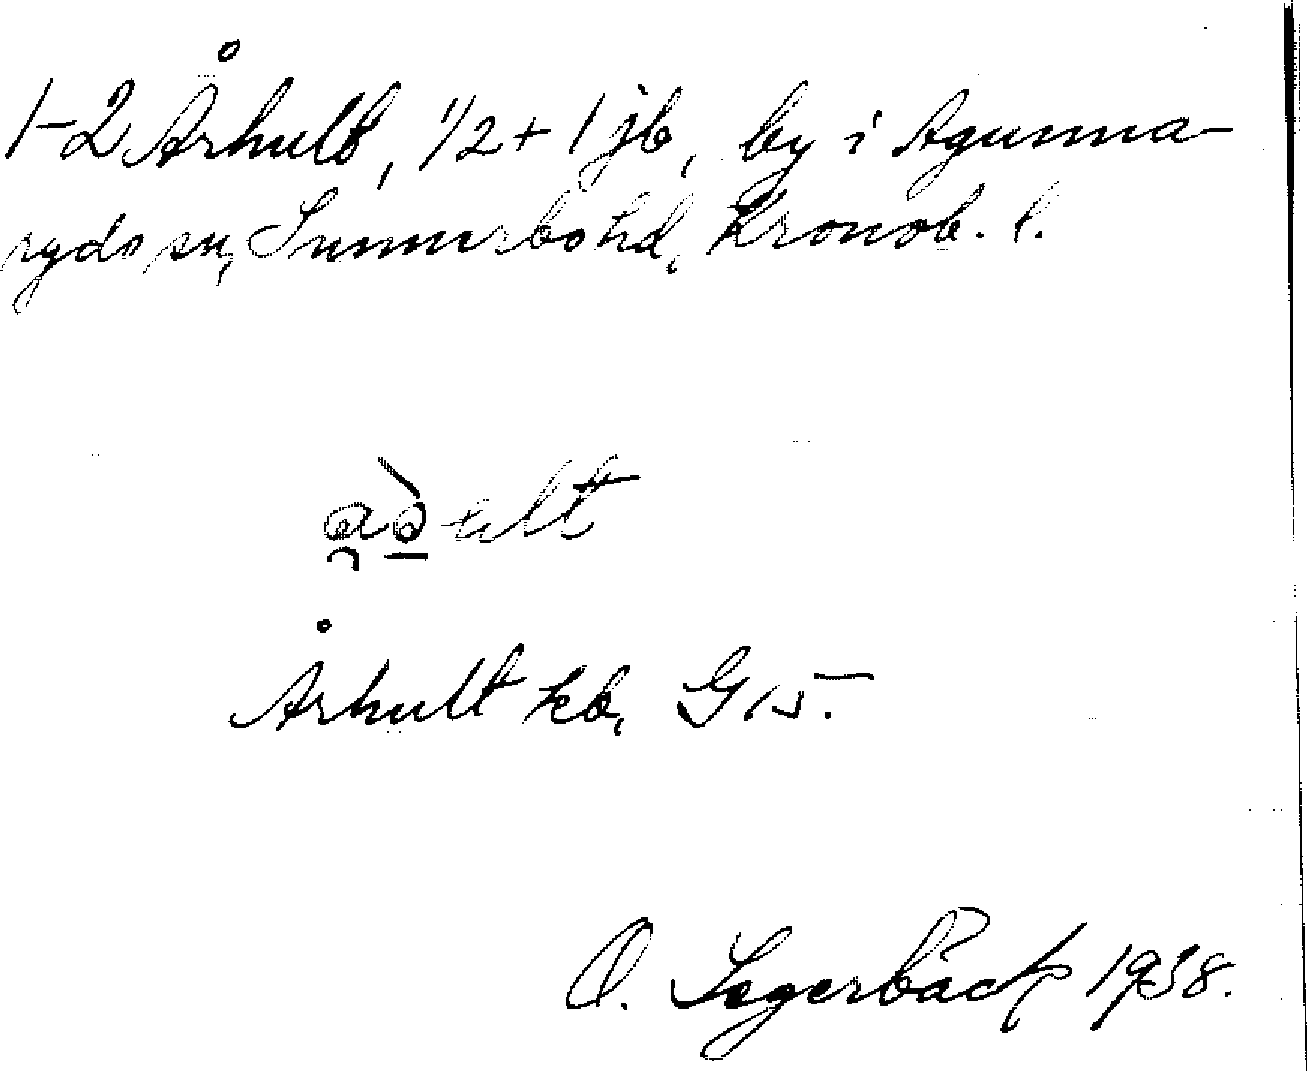 1-2 Århult, 1/2 + 1 jb, by i Agunna-
ryds sn, Sunnerbo hd, Kronob. l.
Århult kb, G 15.
O. Segerbäck 1938.